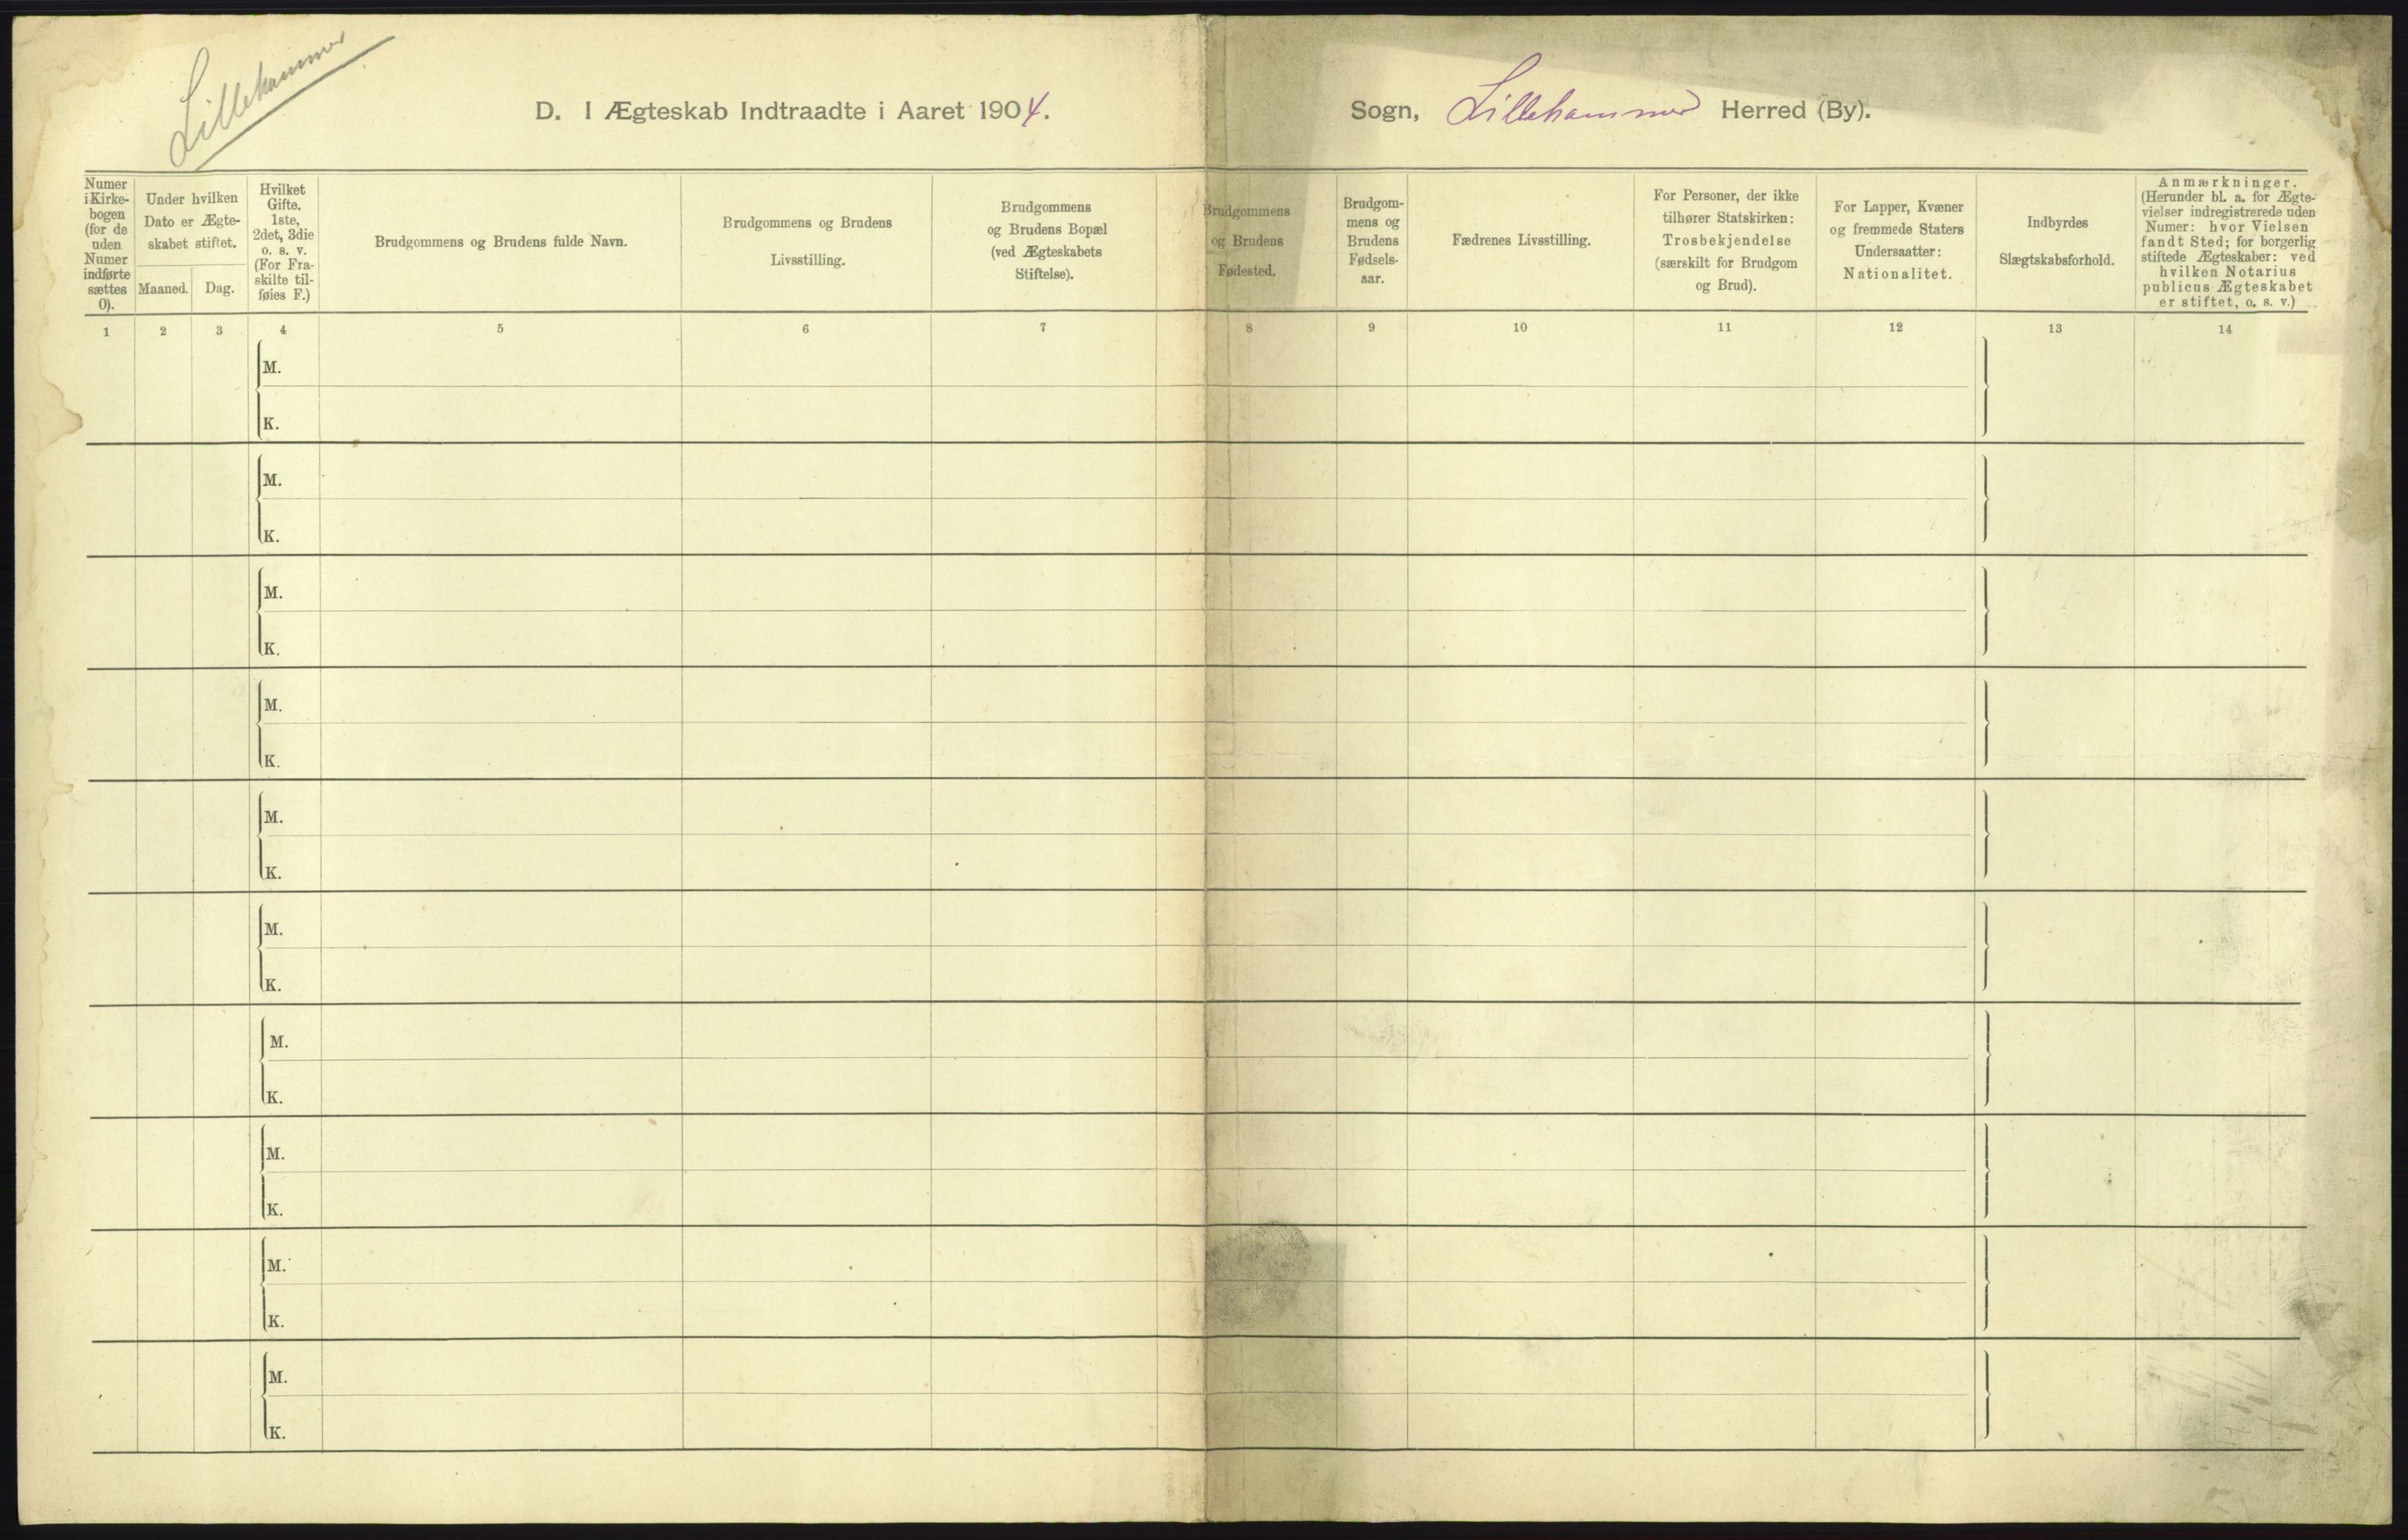 Lillehammer
D. I Ægteskab Indtraadte i Aaret 1904.
Sogn, Lillehammer Herred (By).
Numer
i Kirke-
bogen
(for de
uden
Numer
indførte
sættes
0).
Under hvilken
Dato er Ægte-
skabet stiftet.
Maaned.
Dag.
Hvilket
Gifte.
1ste,
2det, 3die
o. s. v.
(For Fra-
skilte til-
føies F.)
Brudgommens og Brudens fulde Navn.
Brudgommens og Brudens
Livsstilling.
Brudgommens
og Brudens Bopæl
(ved Ægteskabets
Stiftelse).
Brudgommens
og Brudens
Fødested.
Brudgom-
mens og
Brudens
Fødsels-
aar.
Fædrenes Livsstilling.
For Personer, der ikke
tilhører Statskirken:
Trosbekjendelse
(særskilt for Brudgom
og Brud).
For Lapper, Kvæner
og fremmede Staters
Undersaatter:
Nationalitet.
Indbyrdes
Slægtskabsforhold.
Anmærkninger.
(Herunder bl. a. for Ægte-
vielser indregistrerede uden
Numer: hvor Vielsen
fandt Sted; for borgerlig
stiftede Ægteskaber: ved
hvilken Notarius
publicus Ægteskabet
er stiftet, o. s. v.)
1 2 3 4 5 6 7 8 9 10 11 12 13 14
M.
K.
M.
K.
M.
K.
M.
K.
M.
K.
M.
K.
M.
K.
M.
K.
M.
K.
M.
K.